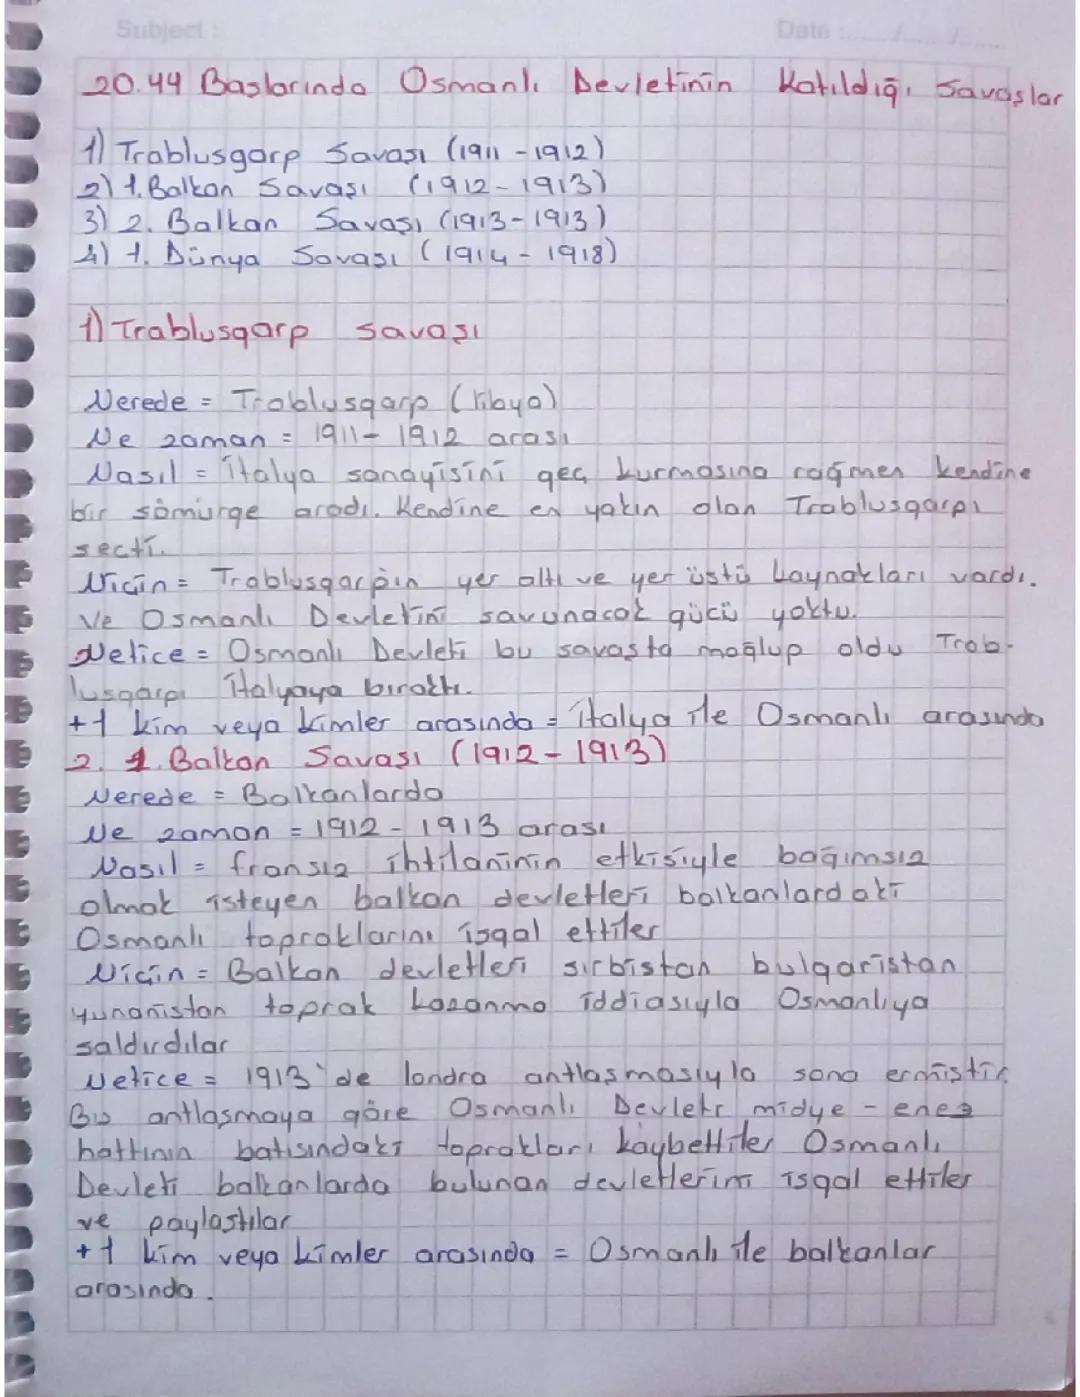 Subject :
Date :....../....../......
20.44 Baslarında Osmanlı Devletinin Katıldığı Savaslar
1) Trablusgarp Savası (1911-1912)
2) 1. Balkan Savaşı (1912-1913)
3) 2. Balkan Savaşı (1913-1913)
4) 1. Dünya Savası (1914-1918)
1) Trablusgarp savaşı
Nerede = Trablusgarp (libya)
Ne zaman = 1911-1912 arası
Nasıl = italya sanayisini geç kurmasına rağmen kendine
bir sömürge aradı. Kendine en yakın olan Trablusgarpı
secti.
Niçin = Trablusgarpin yer altı ve yer üstü kaynakları vardı.
Ve Osmanlı Devletini savunacak gücü yoktu.
Netice = Osmanlı Devleti bu savasta mağlup oldu Trab-
lusgarpı italyaya bıraktı.
+1 kim veya kimler arasında = italya ile Osmanlı arasında
2. 1. Balkan Savaşı (1912-1913)
Nerede = Balkanlarda
Ne zaman = 1912-1913 arası
Nasıl = fransız ihtilaninin etkisiyle bağımsız
olmak isteyen balkan devletleri balkanlardaki
Osmanlı topraklarını işgal ettiler
Niçin = Balkan devletleri sırbistan bulgaristan
yunanistan toprak kazanma iddiasıyla Osmanlıya
saldırdılar
Netice = 1913'de londra antlasmasıyla sona ermistir
Bu antlaşmaya göre Osmanlı Devleti midye - enez
hattının batısındaki toprakları kaybettiler Osmanlı
Devleti balkanlarda bulunan devletlerini isgal ettiler
ve paylastılar
+1 kim veya kimler arasında = Osmanlı ile balkanlar
arasında.